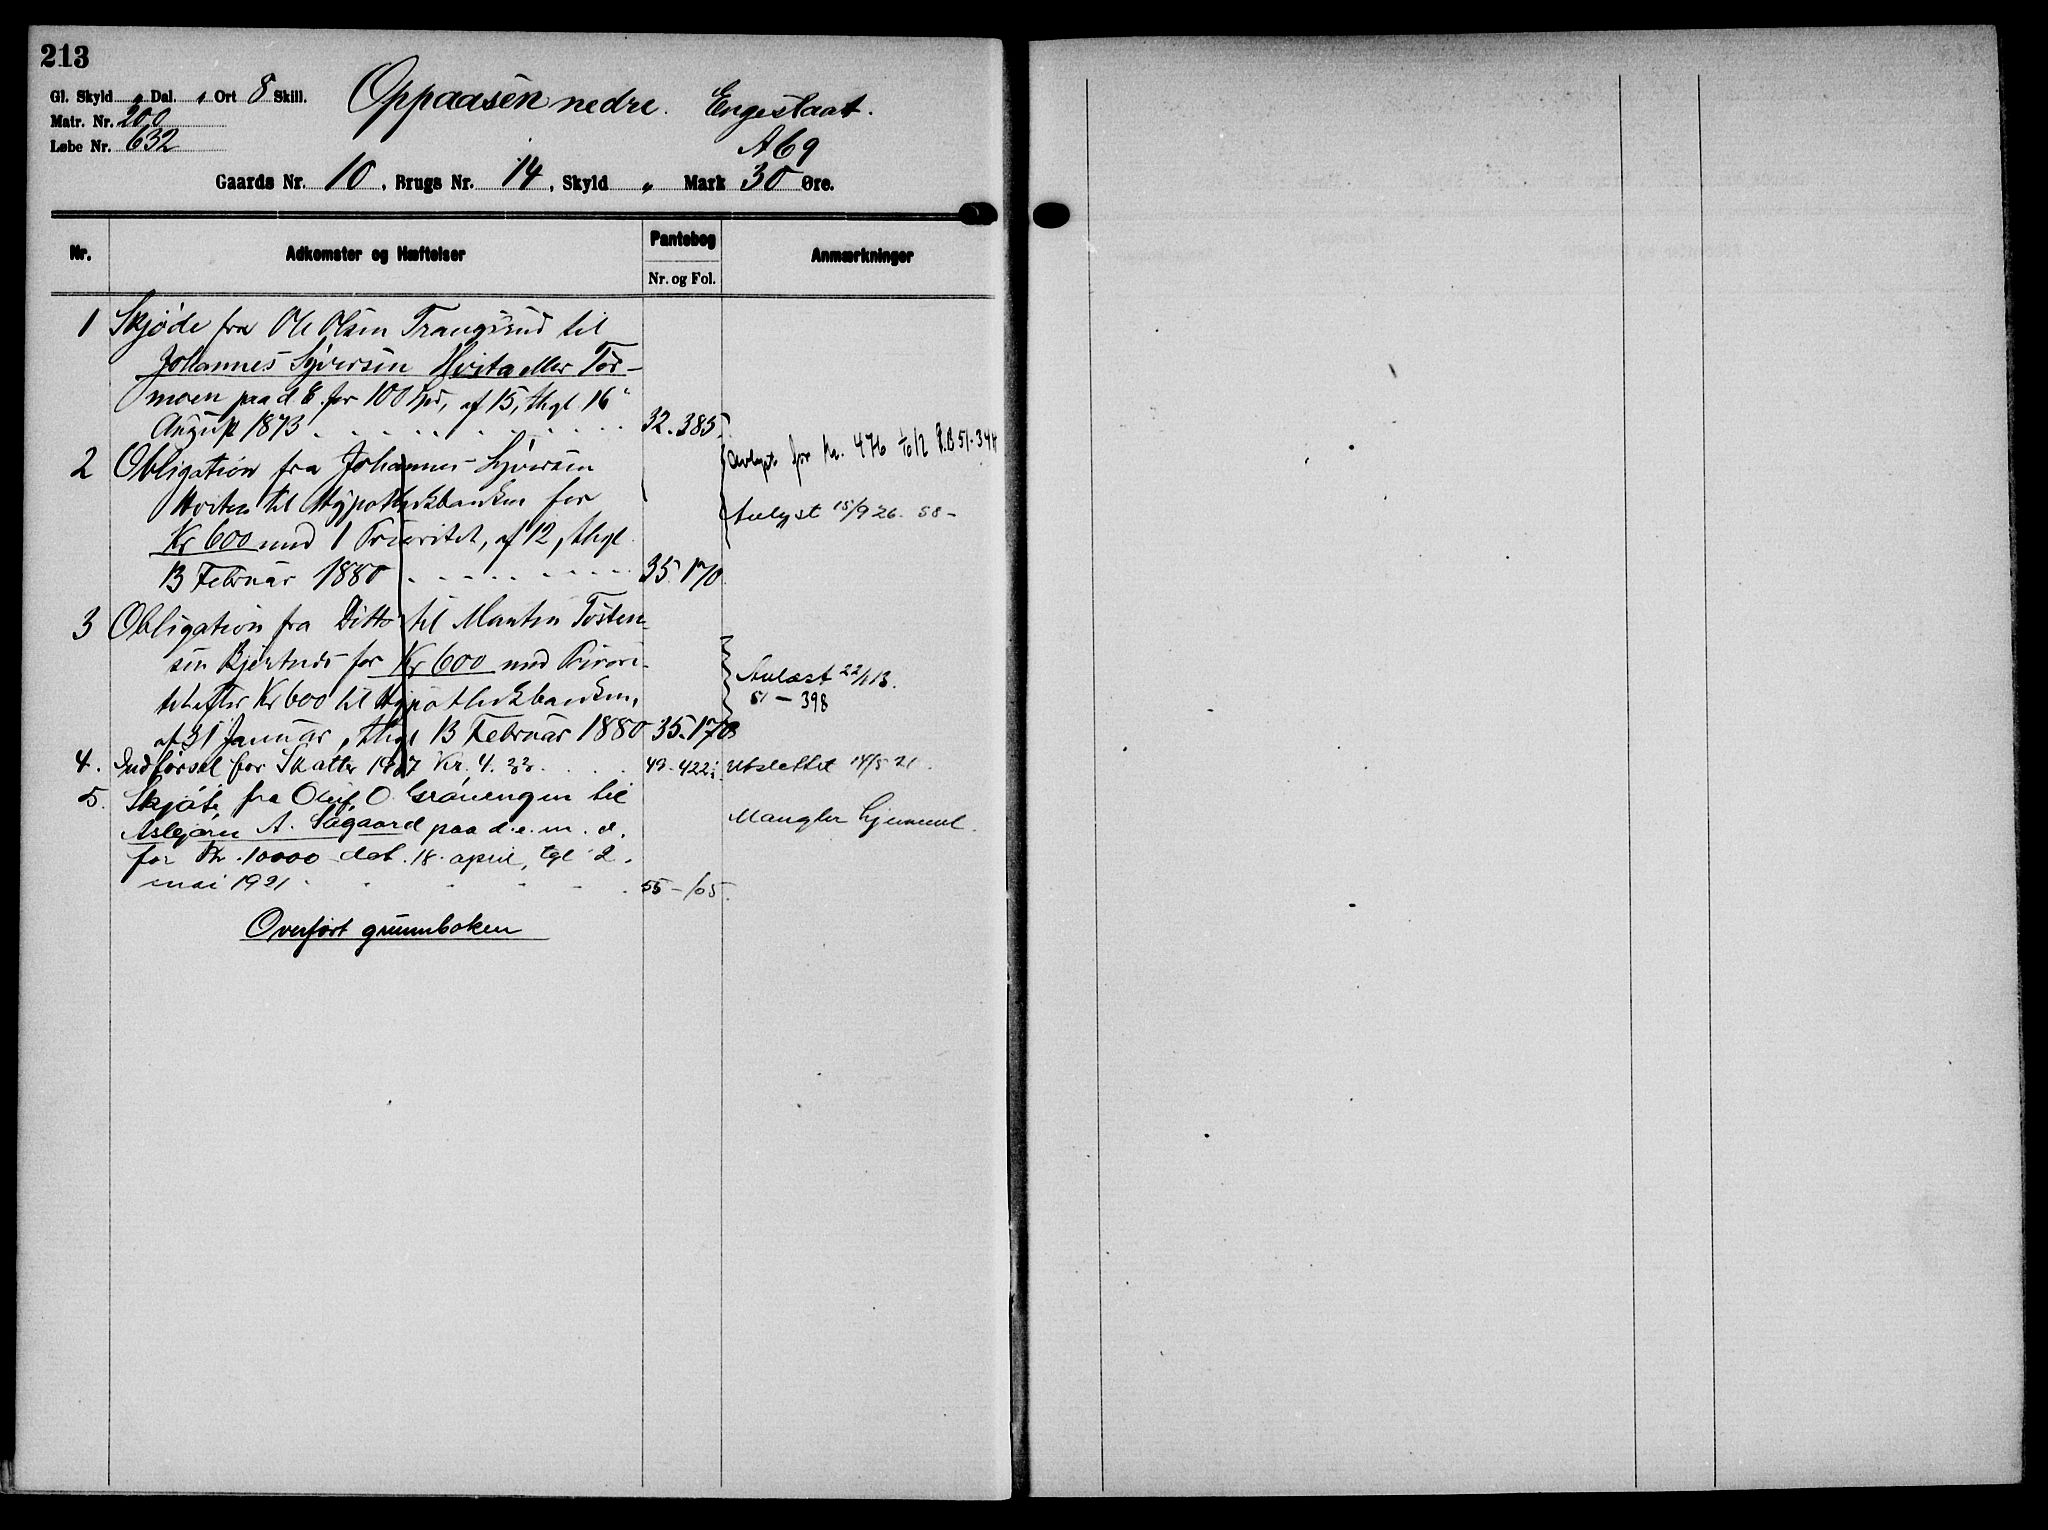 213
Gl. Skyld „ Dal. „ Ort 8 Skill.
Oppaasen nedre. Engeslaat.
Matr. Nr. 200
Løbe Nr. 632
A 69
Gaards Nr. 10, Brugs Nr. 14, Skyld „ Mark 30 Øre.
Nr. Adkomster og Hæftelser Pantebog Anmærkninger
Nr. og Fol.
1 Skjøde fra Ole Olsen Trangsrud til
Johannes Syversen Hvita eller Tor-
moen paa d. E. for 100 Spd, af 15, thgl. 16
August 1873 32.385
2 Obligation fra Johannes Syversen
Hviten til Hypothekbanken for
Kr 600 med 1 Prioritet, af 12, thgl.
13 Februar 1880 35.170
Avlyst for Kr. 476 10/12 P.B 51-344
Avlyst 15/9 26. 58-
3 Obligation fra Ditto til Martin Tosten-
sen for Kr 600 med Priori-
tet efter Kr 600 til Hypothekbanken,
af 31 Januar, thgl 13 Februar 1880 35.170
Avlæst 22/1 13.
51-398
4. Indførsel for Skatter 1907 Kr. 4.33. 49-422 Utslettet 14/5 21.
5. Skjøte fra Oluf O. Grønengen til
Asbjørn A. Sagaard paa d.e.m.d. Mangler hjemmel.
for Kr. 10000 dat. 18. april, tgl 2.
mai 1921 55-105.
Overført grunnboken